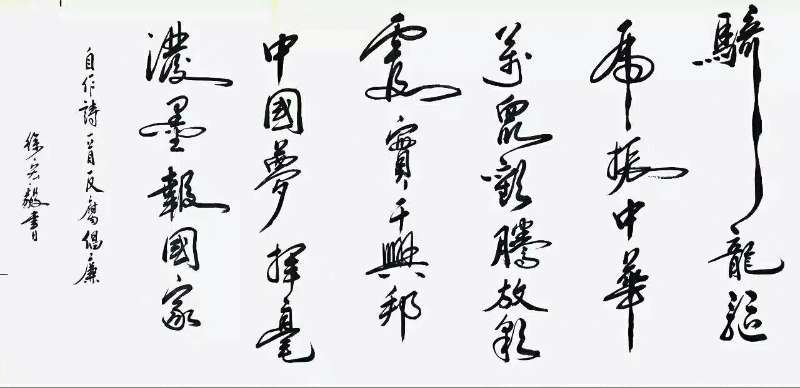 騎龍驅
虎振中華
萬眾歡騰放彩
霞實干興邦
中國夢揮毫
濃墨報國家
自作詩一首反腐倡廉
徐宏毅書